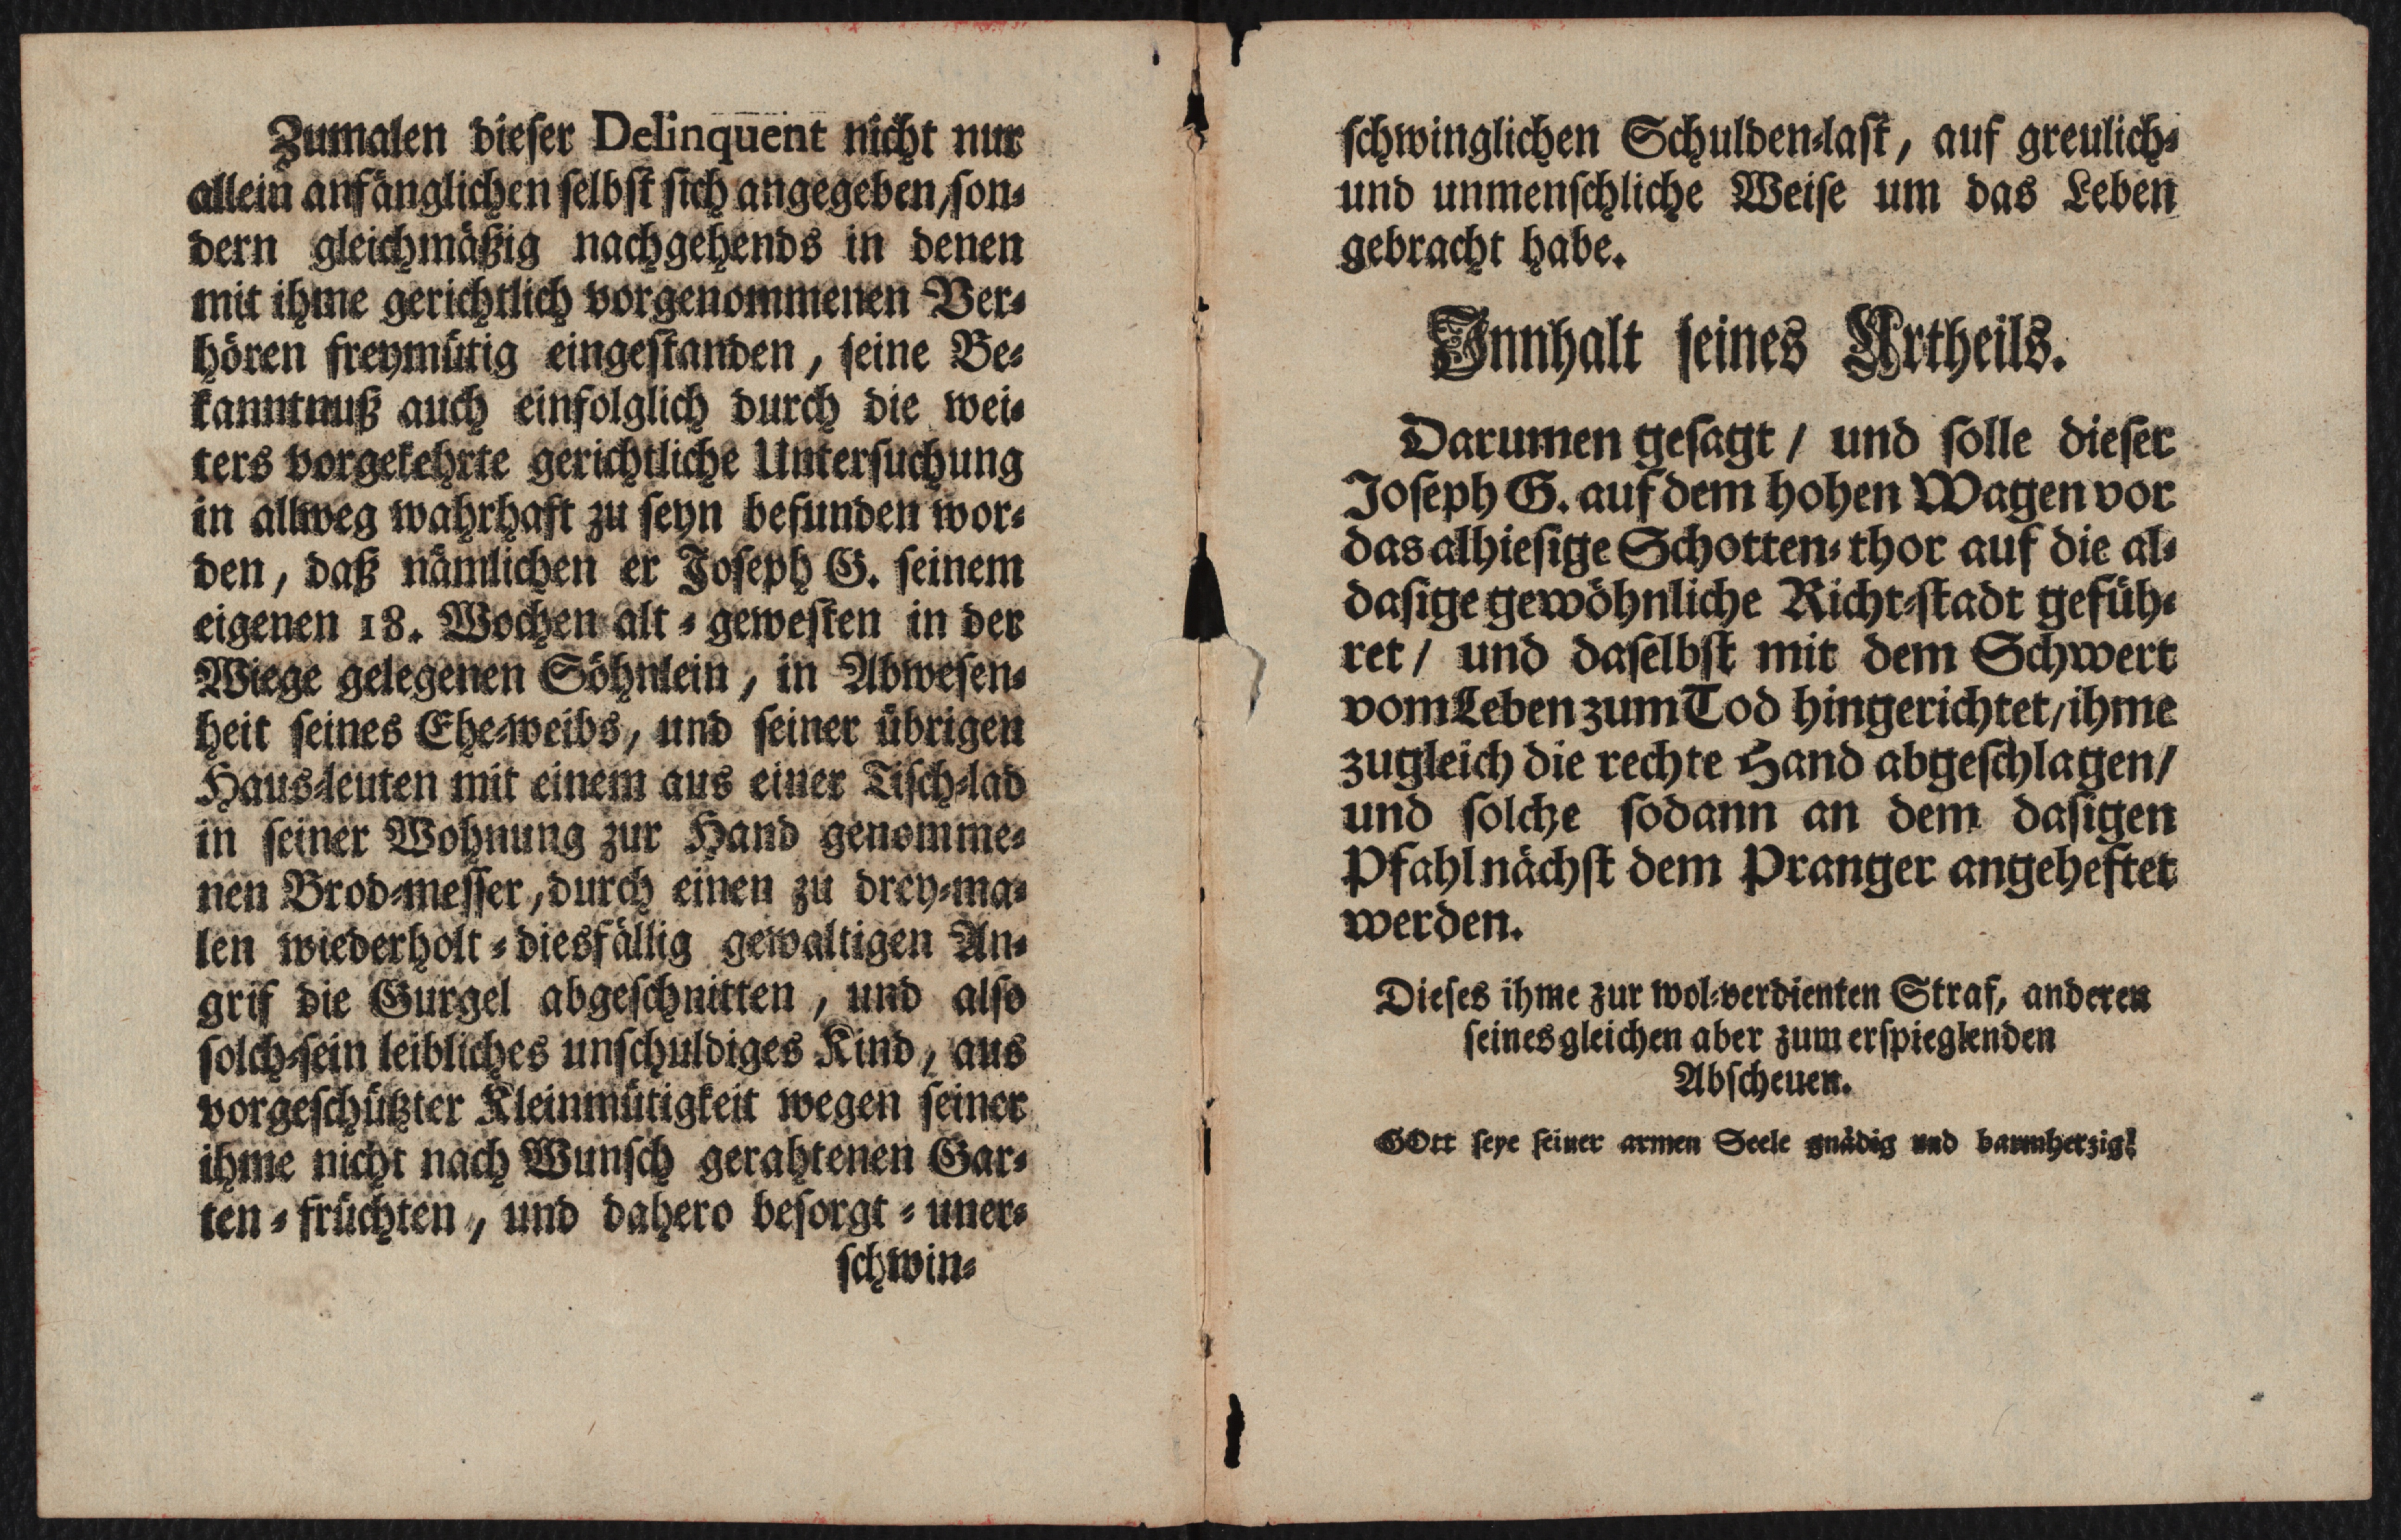 Zumalen dieser Delinquent nicht nur
allein anfänglichen selbst sich angegeben, son-
dern gleichmäßig nachgehends in denen
mit ihme gerichtlich vorgenommenen Ver-
hören freymütig eingestanden, seine Be-
kanntnuß auch einfolglich durch die wei-
ters vorgekehrte gerichtliche Untersuchung
in allweg wahrhaft zu seyn befunden wor-
den, daß nämlichen er Joseph G. seinem
eigenen 18. Wochen alt-gewesten in der
Wiege gelegenen Söhnlein, in Abwesen-
heit seines Ehe-weibs, und seiner übrigen
Haus-leuten mit einem aus einer Tisch-lad
in seiner Wohnung zur Hand genomme-
nen Brod-messer, durch einen zu drey-ma-
len wiederholt-diesfällig gewaltigen An-
grif die Gurgel abgeschnitten, und also
solch-sein leibliches unschuldiges Kind, aus
vorgeschützter Kleinmütigkeit wegen seiner
ihme nicht nach Wunsch gerahtenen Gar-
ten-früchten, und dahero besorgt-uner-
schwin-
schwinglichen Schulden-last, auf greulich-
und unmenschliche Weise um das Leben
gebracht habe.
Innhalt seines Urtheils.
Darumen gesagt / und solle dieser
Joseph G. auf dem hohen Wagen vor
das alhiesige Schotten-thor auf die al-
dasige gewöhnliche Richt-stadt gefüh-
ret / und daselbst mit dem Schwert
vom Leben zum Tod hingerichtet / ihme
zugleich die rechte Hand abgeschlagen /
und solche sodann an dem dasigen
Pfahl nächst dem Pranger angeheftet
werden.
Dieses ihme zur wol-verdienten Straf, anderen
seines gleichen aber zum erspieglenden
Abscheuen.
GOtt seye seiner armen Seele gnädig und barmherzig!